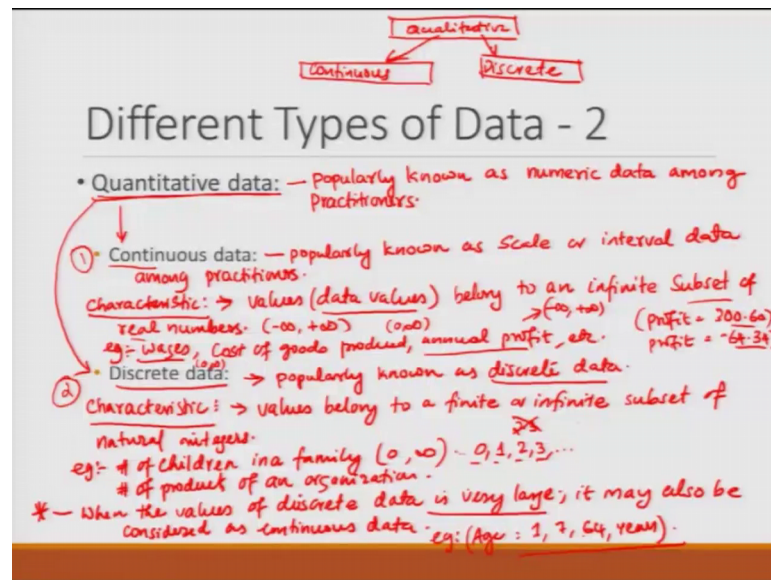 Qualitative
Continuous Discrete
Different Types of Data - 2
• Quantitative data: — popularly known as numeric data among
practitioners.
① • Continuous data: — popularly known as scale or interval data
among practitioners.
Characteristic: → values (data values) belong to an infinite subset of
real numbers. (-∞, +∞) (0,∞) →(-∞, +∞) (profit = 200.60)
eg:- wages, cost of goods produced, annual profit, etc. profit = -64.34
(0,∞)
② • Discrete data: → popularly known as discrete data.
Characteristic: → values belong to a finite or infinite subset of
natural integers.
eg:- # of children in a family (0, ∞) - 0, 1, 2, 3, ...
# of product of an organization.
* — When the values of discrete data is very large, it may also be
considered as continuous data. eg: (Age : 1, 7, 64, years).